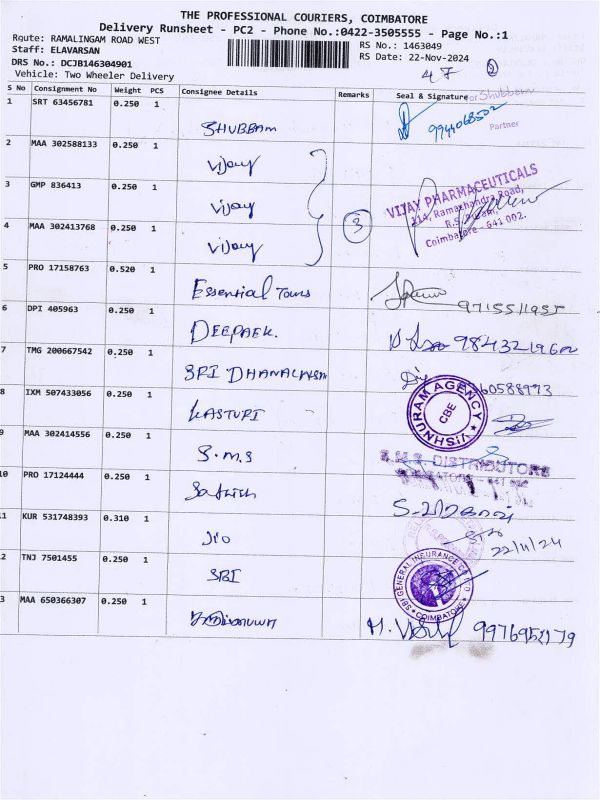 THE PROFESSIONAL COURIERS, COIMBATORE
Delivery Runsheet - PC2 - Phone No.:0422-3505555 - Page No.:1
Route: RAMALINGAM ROAD WEST
RS No.: 1463049
Staff: ELAVARSAN
RS Date: 22-Nov-2024
DRS No.: DCJB146304901
Vehicle: Two Wheeler Delivery
47 2
S No Consignment No Weight PCS Consignee Details Remarks Seal & Signature
1 SRT 63456781 0.250 1 SHUBBAM
For Shubbam
9944068502
Partner
2 MAA 302588133 0.250 1 Vijay
3 GMP 836413 0.250 1 Vijay 3
VIJAY PHARMACEUTICALS
114, Ramachandra Road,
R.S. Puram,
Coimbatore - 641 002.
4 MAA 302413768 0.250 1 Vijay
5 PRO 17158763 0.520 1 Essential Tours 9715511955
6 DPI 405963 0.250 1 DEEPAEK.
7 TMG 200667542 0.250 1 SRI DHANALAKSMI
8 IXM 507433056 0.250 1 KASTURI
VISHNURAM AGENCY
CBE
9 MAA 302414556 0.250 1 S.M.S
S.M.S. DISTRIBUTORS
10 PRO 17124444 0.250 1 Sathish
11 KUR 531748393 0.310 1 Jio
22/11/24
12 TNJ 7501455 0.250 1 SBI
SBI GENERAL INSURANCE CO LTD
COIMBATORE
13 MAA 650366307 0.250 1